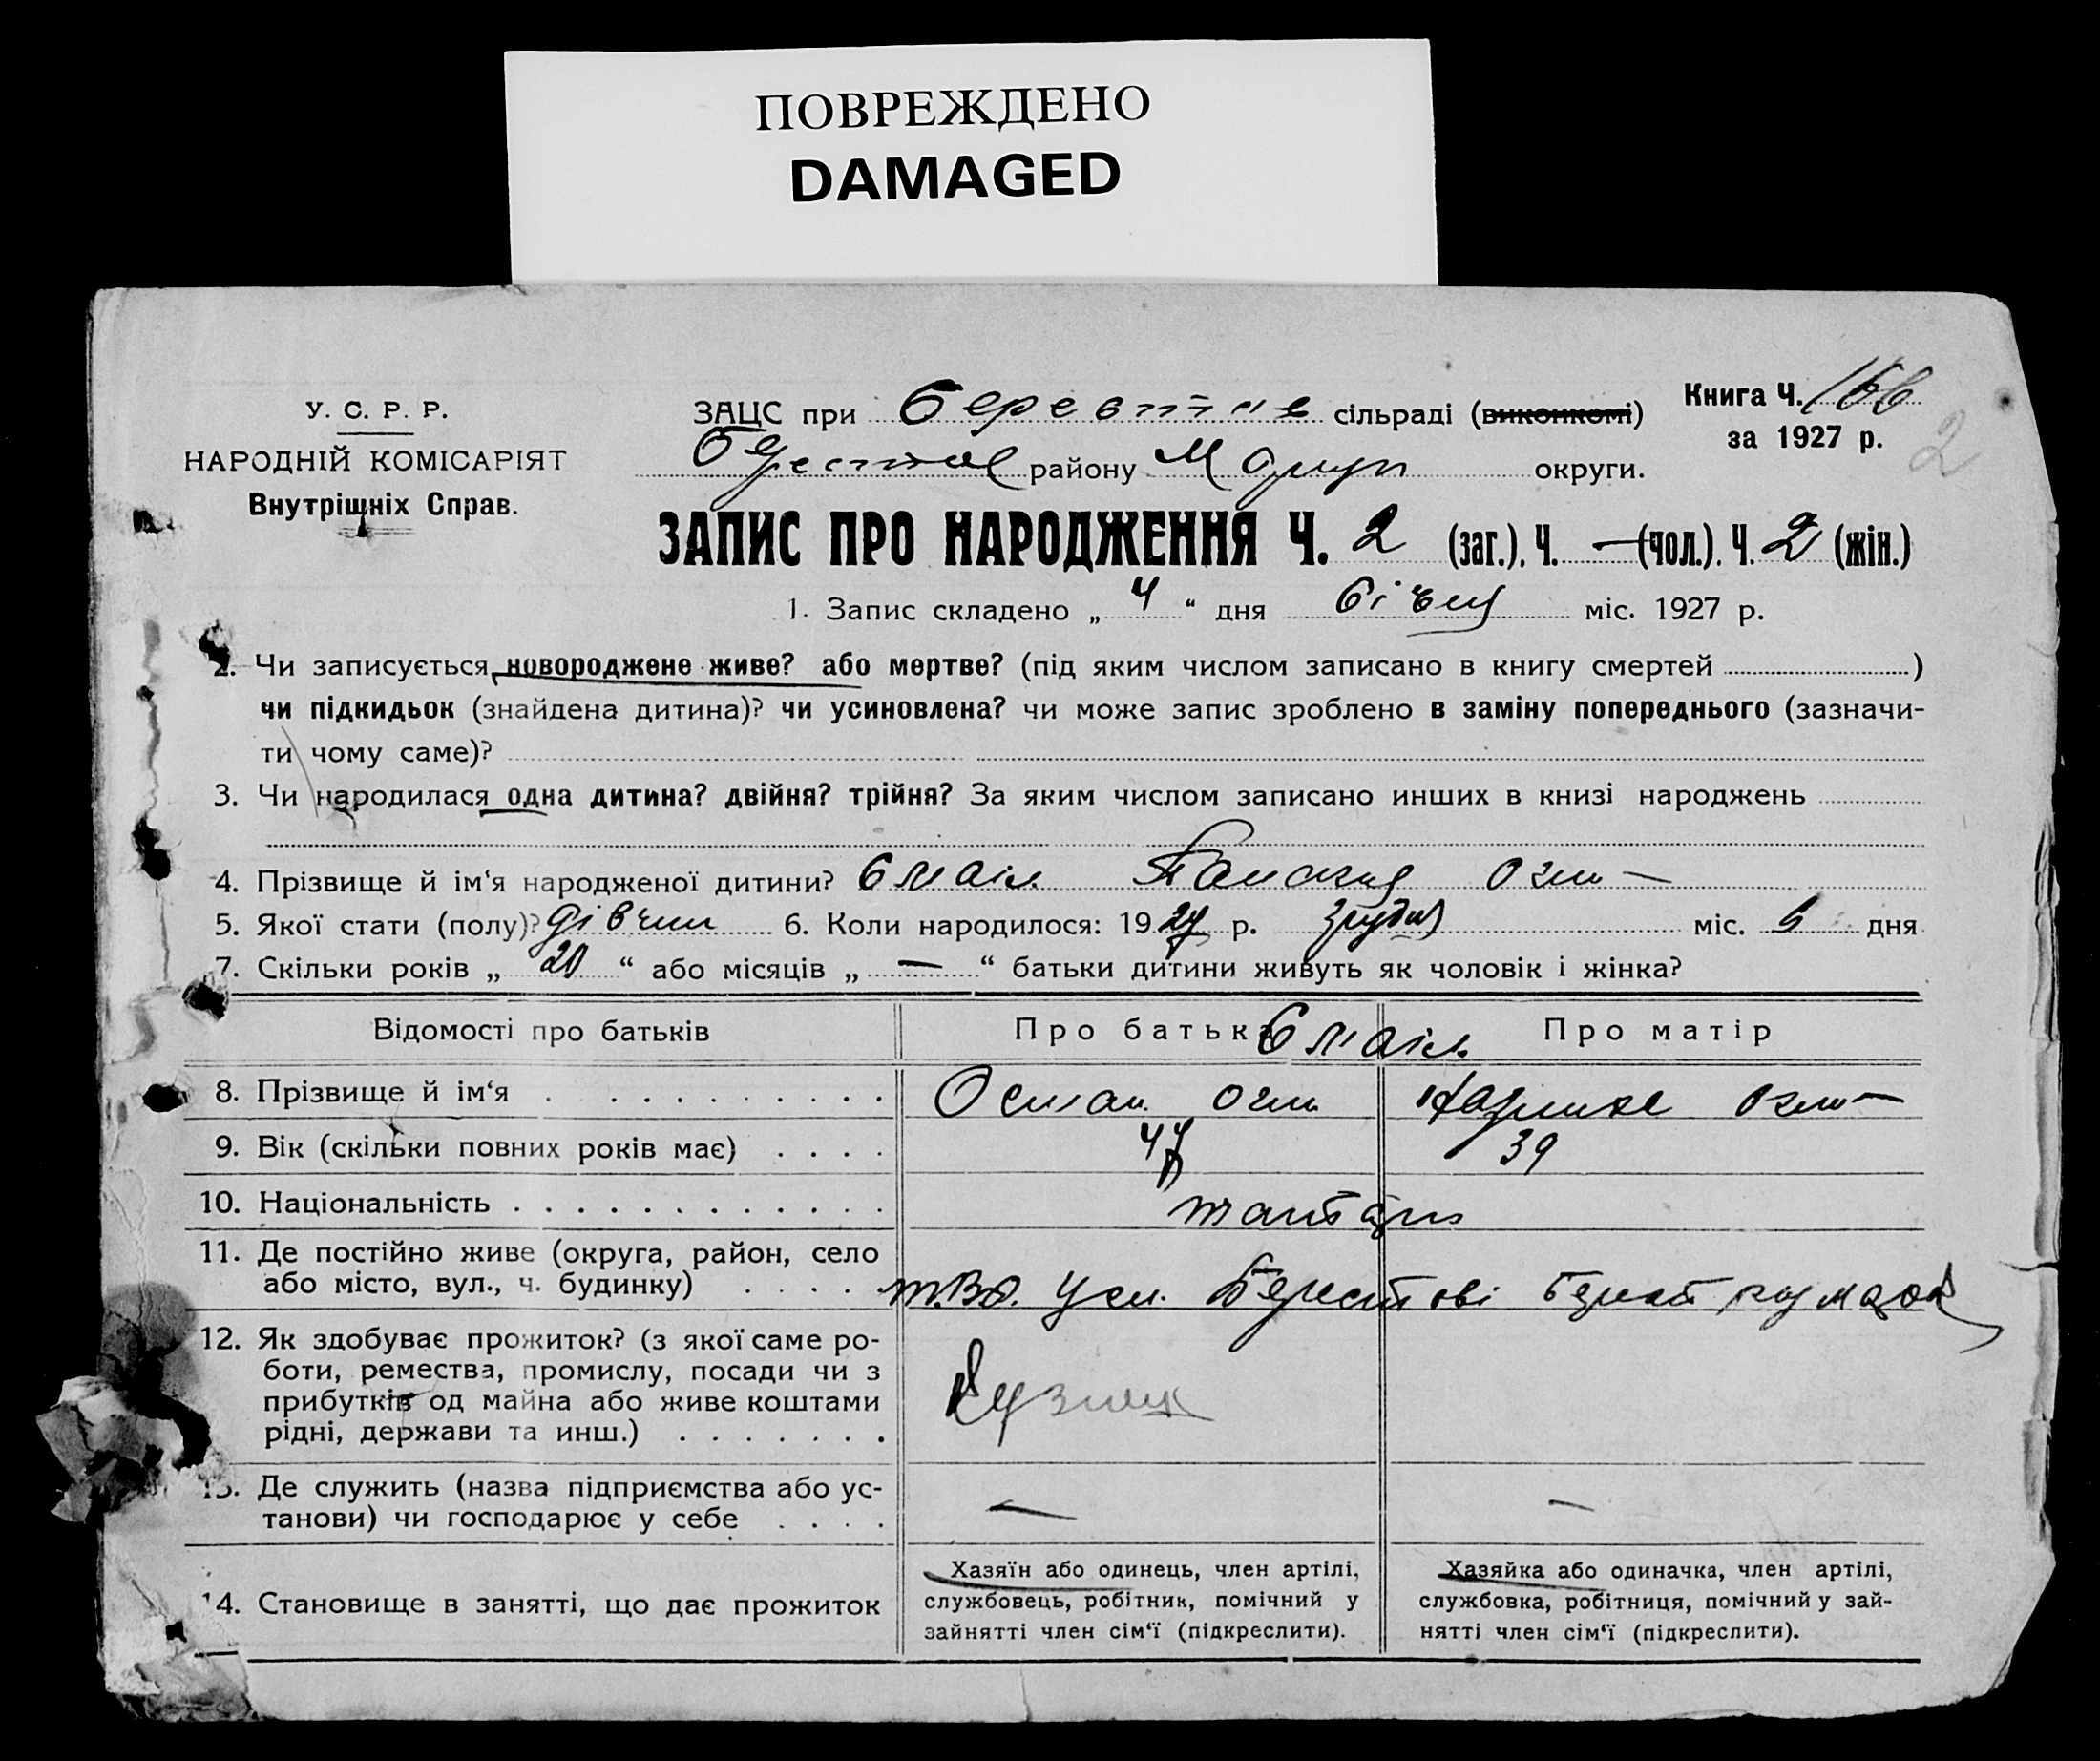 ПОВРЕЖДЕНО
DAMAGED
У. С. Р. Р.
НАРОДНІЙ КОМІСАРІЯТ
Внутрішніх Справ.
ЗАЦС при сільраді (виконкомі)
району Маріуп округи.
Книга Ч. 166
за 1927 р.
2
ЗАПИС ПРО НАРОДЖЕННЯ Ч. 2 (заг.), Ч. — (чол.). Ч. 2 (жін.)
1. Запис складено „ 4 “ дня січня міс. 1927 р.
2. Чи записується новороджене живе? або мертве? (під яким числом записано в книгу смертей )
чи підкидьок (знайдена дитина)? чи усиновлена? чи може запис зроблено в заміну попереднього (зазначи-
ти чому саме)?
3. Чи народилася одна дитина? двійня? трійня? За яким числом записано инших в книзі народжень
4. Прізвище й ім‘я народженої дитини? Смаіл огли —
5. Якої стати (полу)? дівчин 6. Коли народилося: 19 р. грудня міс. дня
7. Скільки років „ 20 “ або місяців „ — “ батьки дитини живуть як чоловік і жінка?
Відомості про батьків Про батька Смаіл Про матір
8. Прізвище й ім‘я Осман огли огли —
9. Вік (скільки повних років має) 47 39
10. Національність
11. Де постійно живе (округа, район, село
або місто, вул., ч. будинку)
12. Як здобуває прожиток? (з якої саме ро-
боти, ремества, промислу, посади чи з
прибутків од майна або живе коштами
рідні, держави та инш.)
Кузнец
13. Де служить (назва підприємства або ус-
танови) чи господарює у себе — —
14. Становище в занятті, що дає прожиток
Хазяїн або одинець, член артілі,
службовець, робітник, помічний у
зайнятті член сім‘ї (підкреслити).
Хазяйка або одиначка, член артілі,
службовка, робітниця, помічний у зай-
нятті член сім‘ї (підкреслити).